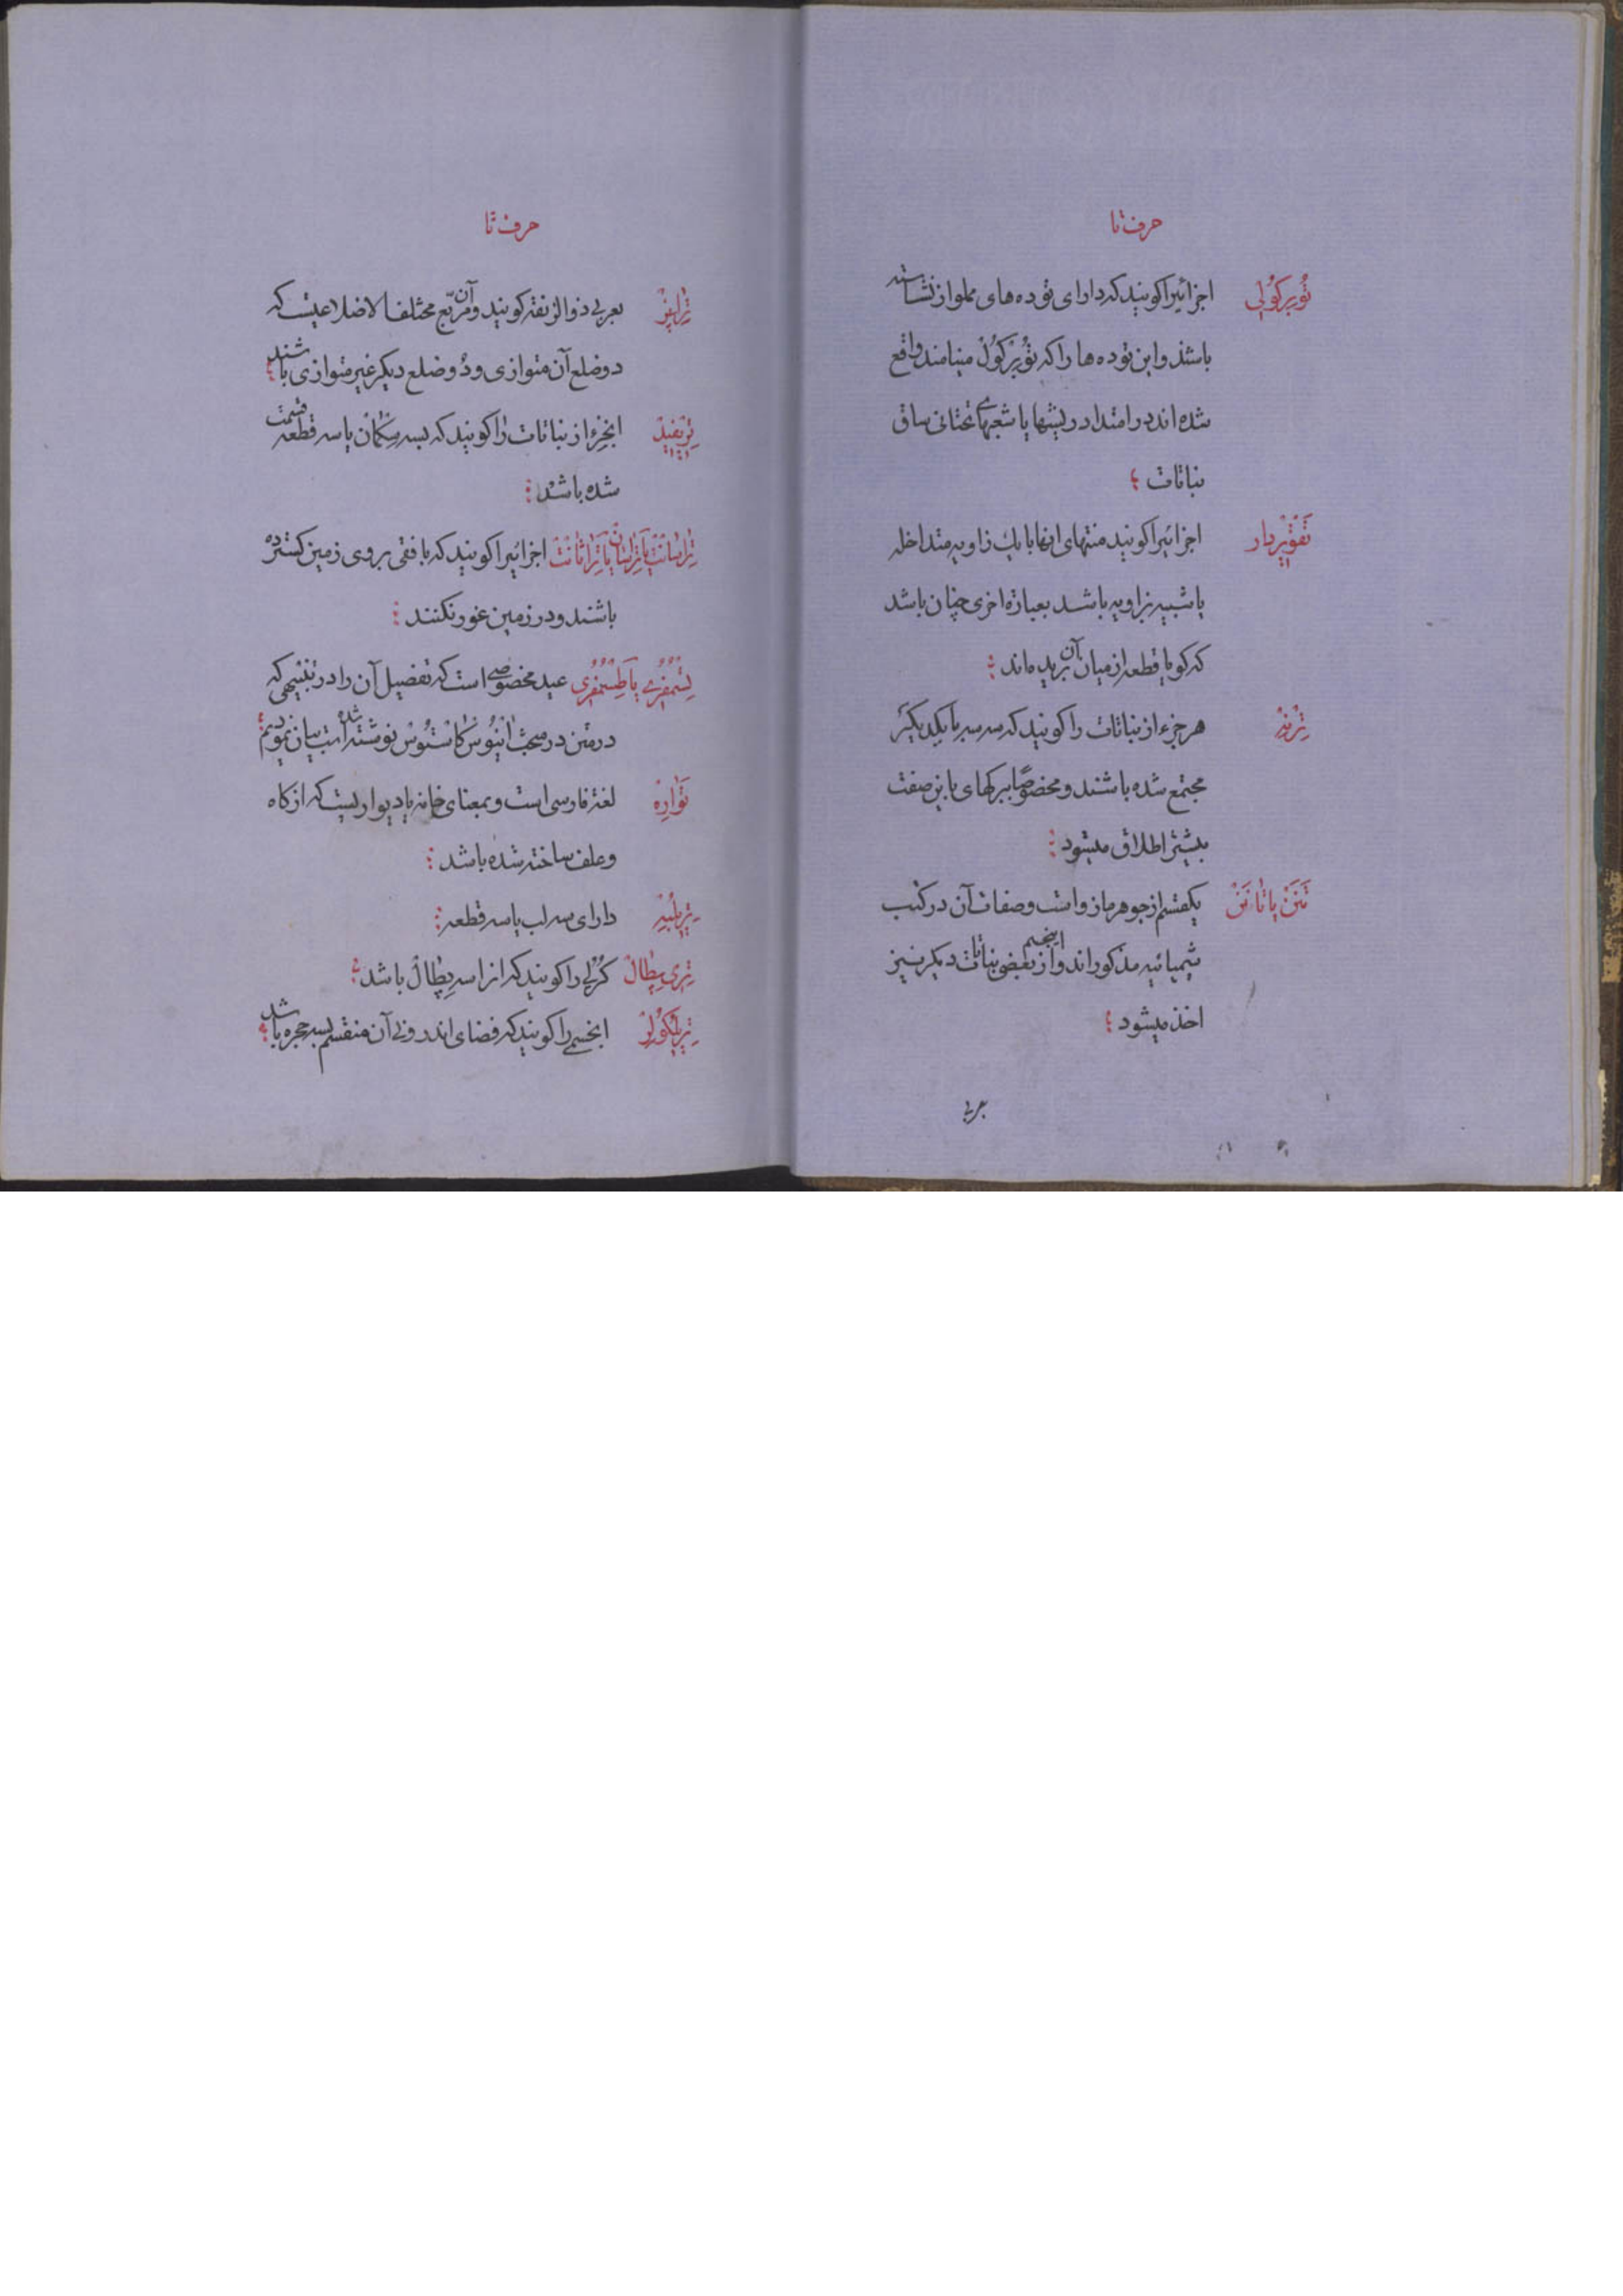 حرف تا
تُوبرکُولی اجزائیرا کویند که دارای توده های مملو از نشاسته
باشند و این توده ها را که تُوبرکُولْ مینامند واقع
شده اند در امتداد ریشها یا شعبهای تحتانی ساق
نباتات
اجزائیرا کویند منتهای انها با یك زاویه متداخله
یا شبیه بزاویه باشد بعبارة اخری چنان باشد
که کویا قطعه از میان آن بریده اند
تِرْنِه هر جزء از نباتات را کویند که سه سه با یکدیکر
مجتمع شده باشند و مخصوصًا ببرکهای باین صفت
بیشتر اطلاق میشود
تَنَنْ یا تانَنْ یکقسم از جوهر مازو است و صفات آن در کتب
شیمیائیه مذکوراند و از بعضی نباتات دیکر نیز
اخذ میشود
بعربی
حرف تا
بعربی ذوالزنقه کویند و آن مربّع مختلف الاضلاعیست که
دو ضلع آن متوازی و دُو ضلع دیکر غیر متوازی باشند
تِریفید ابخزء از نباتات را کویند که بسه سِکمان یا سه قطعه قسمت
شده باشد
اجزائیرا کویند که بافقی بروی زمین کسترده
باشند و در زمین غور نکنند
عید مخصوصی است که تفصیل آن را در تنبیهی که
در متن در مبحث نوشته شده است بیان نمودیم
تَوارِه لغة فارسی است و بمعنای خانه یا دیواریست که از کاه
و علف ساخته شده باشد
تِریلبِیِه دارای سه لب یا سه قطعه
تِری پِطالْ کُرُلی را کویند که از اسه پِطالْ باشد
تِریلُکُولِر ابخسمی را کویند که فضای اندرونی آن منقسم بسه حجره باشد